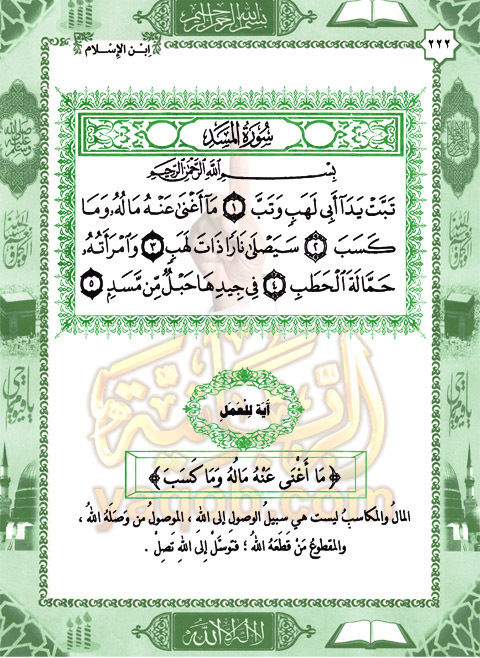 بسم الله الرحمن الرحيم
٢٢٢
ابن الإسلام
سُورَةُ المَسَدِ
بِسْمِ اللَّهِ الرَّحْمَٰنِ الرَّحِيمِ
تَبَّتْ يَدَآ أَبِى لَهَبٍ وَتَبَّ ١ مَآ أَغْنَىٰ عَنْهُ مَالُهُۥ وَمَا
كَسَبَ ٢ سَيَصْلَىٰ نَارًا ذَاتَ لَهَبٍ ٣ وَٱمْرَأَتُهُۥ
حَمَّالَةَ ٱلْحَطَبِ ٤ فِى جِيدِهَا حَبْلٌ مِّن مَّسَدٍ ٥
آيَة لِلْعَمَلِ
﴿ مَا أَغْنَى عَنْهُ مَالُهُ وَمَا كَسَبَ ﴾
المَالُ والمكاسبُ ليست هي سبيلُ الوصولِ إلى اللهِ ، الموصولُ مَن وَصَلَهُ اللهُ ،
والمقطوعُ مَنْ قَطَعَهُ اللهُ ؛ فتوسَّلْ إلى اللهِ تَصِلْ .
yaqob.com
لا إله إلا الله